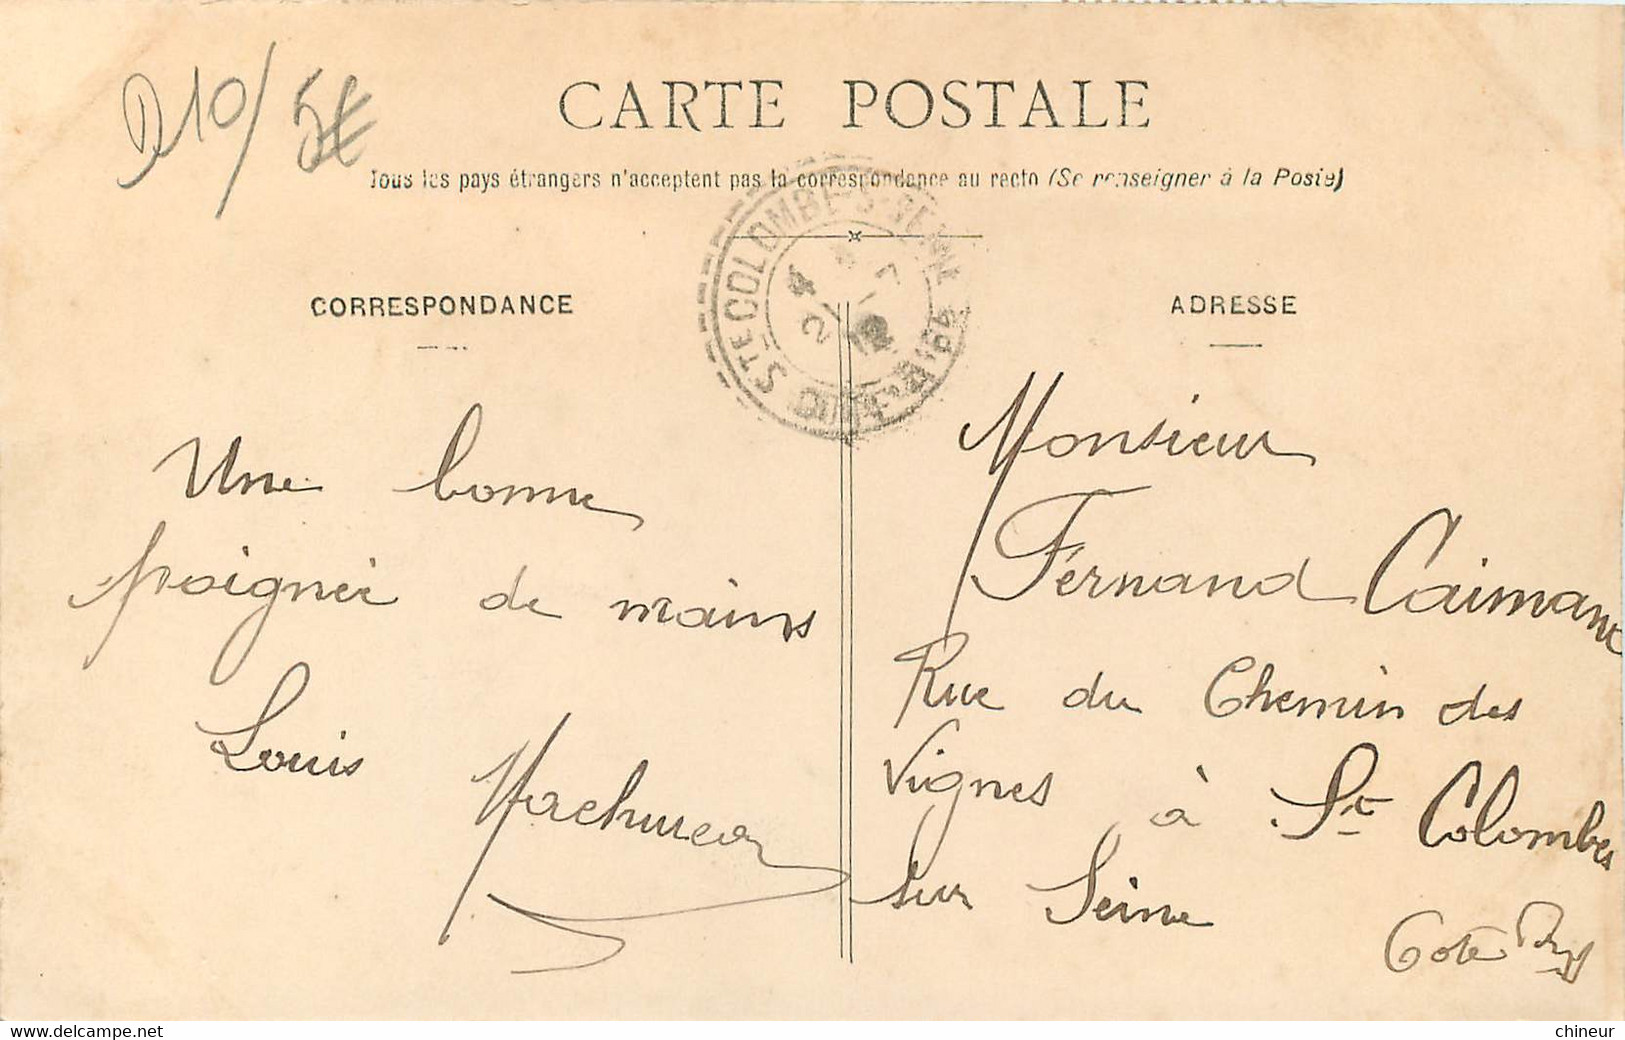 210/ 5€
CARTE POSTALE
Tous les pays étrangers n'acceptent pas la correspondance au recto (Se renseigner à la Poste)
STE COLOMBE-S-SEINE
CORRESPONDANCE
Une bonne
poignée de mains
Louis
ADRESSE
Monsieur
Fernand Caimant
Rue du Chemin des
Vignes à Ste Colombes
sur Seine
Cote
www.delcampe.net
chineur